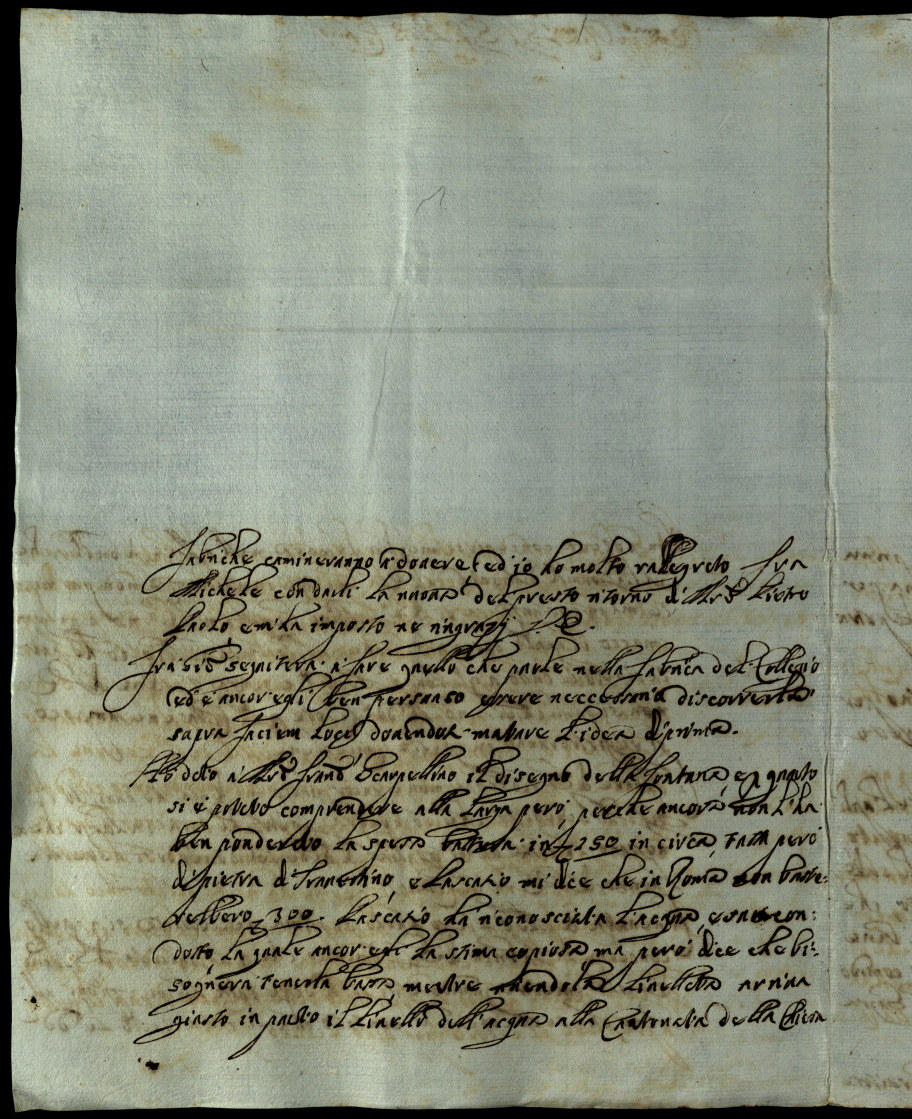 fabriche camineranno à dovere, ed io ho molto rallegrato fra
Michele con darli la nuova del presto ritorno di Mrõ Pietro
Paolo e mi ha imposto ne ringrazij V.
fra seguiterà à fare quello che puole nella fabrica del Collegio
ed è ancor egli ben persuaso essere neccessaria discorrerla
sopra faciem loci, dovendosi mutare l'idea di prima.
Hò detto à Mrõ Franc̃ Scarpellino il disegno della fontana e quanto
si è potuto comprendere alla larga però, perche ancora non l'ha
ben ponderato la spesa batterà in 250 in circa, fatta però
di pietra di Trauertino, e Lascaro mi dice che in Roma non baste:
rebbero 300. Lascaro ha riconosciuta l'acqua, e suo con:
dotto la quale ancor egli la stima copiosa ma però dice che bi:
sognerà tenerla bassa mentre livellata arriva
giusto in punto il livello dell'acqua alla della Chiesa